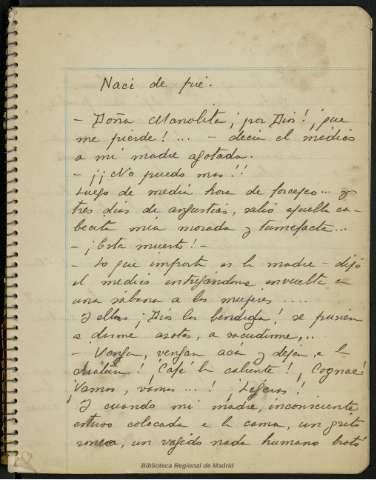 Naci de pié.
- Doña Manolita, ¡por Dios! ¡que
me pierde!... - decia el médico
a mi madre agotada.
- ¡¡No puedo mas!!
Luego de media hora de forceps... y
tres dias de angustias, salió aquella ca-
becita mia morada y tumefacta...
- ¡Está muerta! -
- Lo que importa es la madre - dijó
el medico entregándome envuelta en
una sábana a las mujeres ....
Y ellas ¡Dios las bendiga! se pusieron
a darme azotes, a sacudirme,..
- Vengan, vengan aca y dejen a la
¡Café bien caliente! ¡Cognac!
¡Vamos, vamos...! ¡Ligeros!
Y cuando mi madre, inconsciente
estuvo colocada e la cama, un grito
ronco, un vagido nada humano brotó
Biblioteca Regional de Madrid